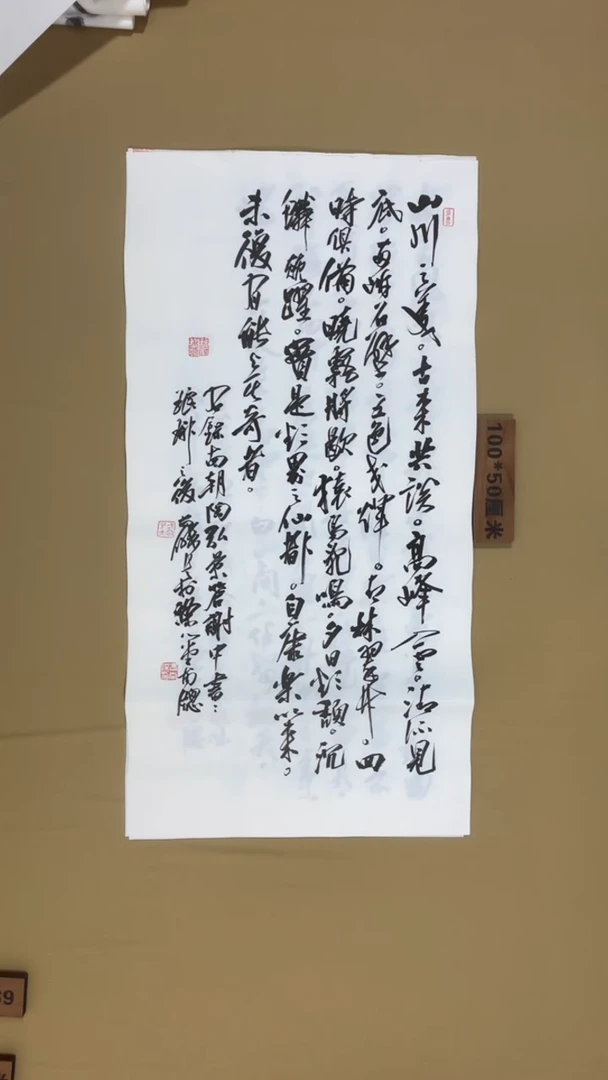 山川之美。古来共談。高峰入雲。清流見
底。兩岸石壁。五色交輝。青林翠竹。四
時俱備。曉霧將歇。猿鳥亂鳴。夕日欲頹。沉
鱗競躍。實是欲界之仙都。自康樂以来。
未復有能与其奇者。
錄南朝陶弘景答謝中書書
南
100*50厘米
69